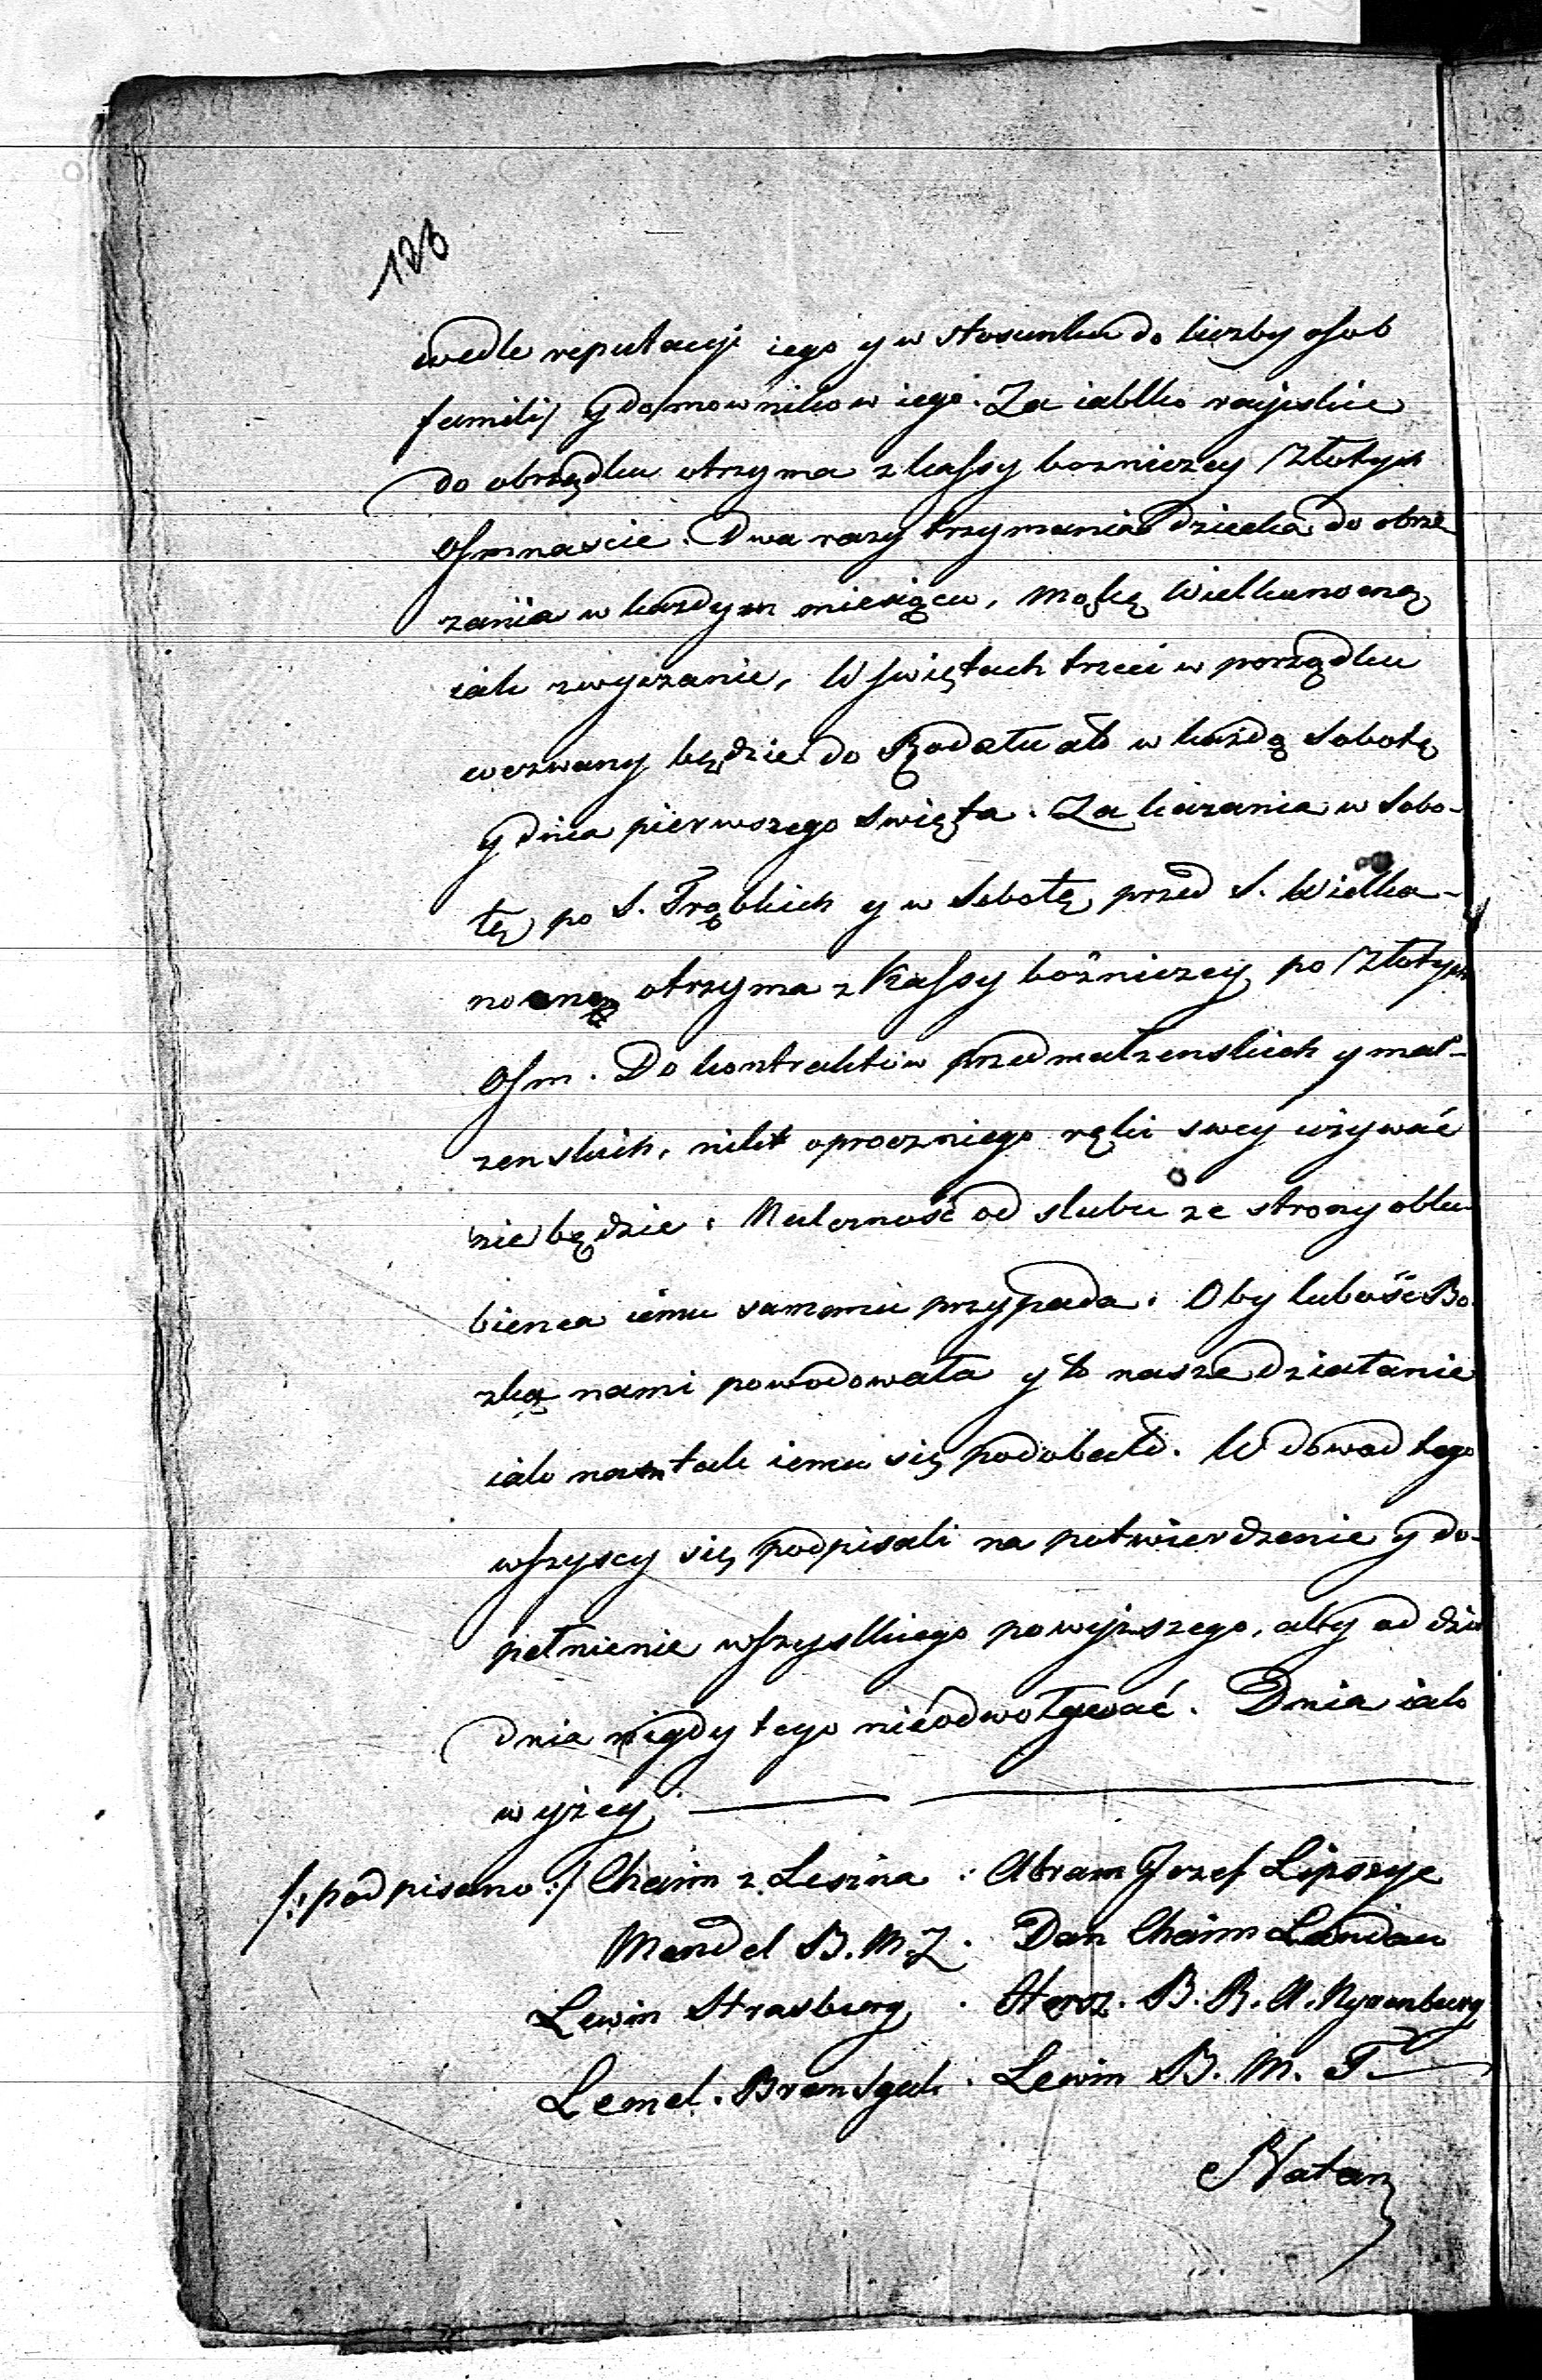 123
wedle reputacji iego y w stosunku do liczby osob
familij y domowników iego. Za iabłko rayskie
do obrządku otrzyma z kassy bożniczey Złotych
Osmnaście. Dwa razy trzymania dziecka do obrze
zania w każdym miesiącu, Mąkę Wielkanocną
iak zwyczanie, W Swiętach trzeci w porządku
wezwany będzie do Rodału ato w każdą Sobotę
y dnia pierwszego Swięta. Za kazania w Sobo-
tę po S. Trąbkich y w Sobotę przed S. Wielka-
nocną otrzyma z Kassy bóżniczey po Złotych
Osm. Do kontraktów przedmałzenskich y mał-
zenskich, nikt oprocz niego ręki swey używać
nie będzie. Należność od slubu ze strony oblu-
bienca iemu samemu przypada. Oby lubość Bo-
zka nami powodowała y to nasze działanie
iako nam tak iemu się podobało. W dowod tego
wszyscy się podpisali na potwierdzenie y do-
pełnienie wszystkiego powyższego, aby od dziś
dnia nigdy tego nieodwoływać. Dnia iako
wyżey
/: podpisano :/ Chaim z Leszna. Abram Jozef Lipszyc
Mendel B. M. Z. Dan Chaim Landau
Lewin Strasburg. Hersz. B. R. A. Nyrenburg
Lemel. Lewin B. M. T.
Natan